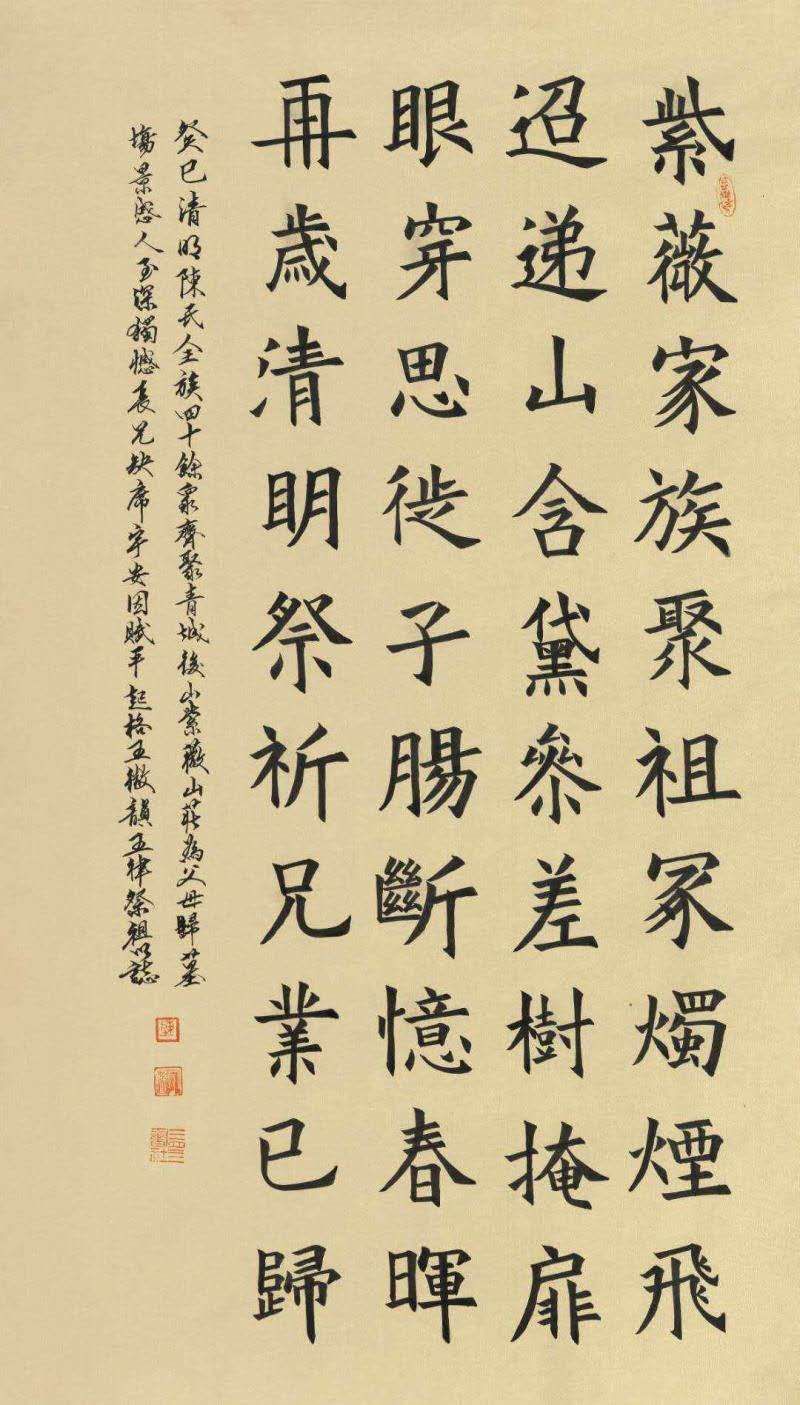 紫薇家族聚祖冢燭煙飛
迢递山含黛參差樹掩扉
眼穿思徙子腸斷憶春暉
再歲清明祭祈兄業已歸
癸巳清明陳氏全族四十餘衆齊聚青城後山紫薇山莊為父母歸墓
場景感人至深獨憾長兄缺席宇安因賦平起格五微韻五律祭祖以誌